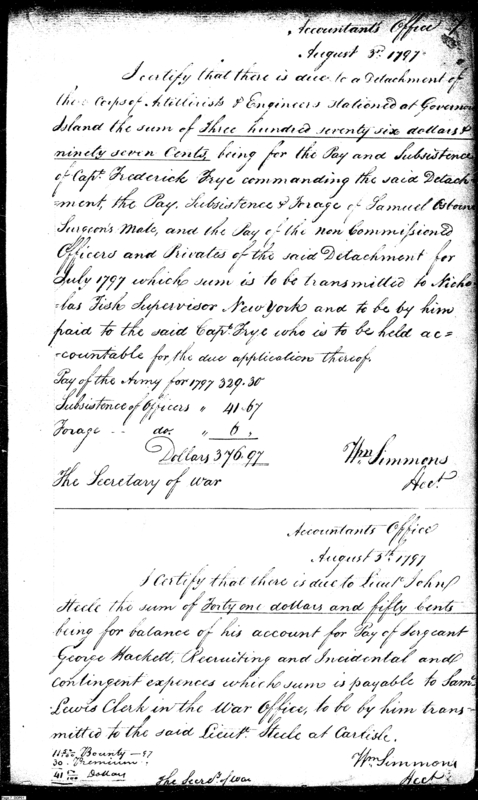 Accountants Office
August 3d. 1797
I certify that there is due to a Detachment of
the Corps of Artillerists & Engineers stationed at Governors
Island the sum of Three hundred seventy six dollars &
ninety seven Cents, being for the Pay and Subsistence
of Capt. Frederick Frye commanding the said Detach=
ment, the Pay, Subsistence & Forage of Samuel Osborne
Surgeon's Mate, and the Pay of the non Commissioned
Officers and Privates of the said Detachment for
July 1797 which sum is to be transmitted to Nicho=
las Fish Supervisor New York and to be by him
paid to the said Capt. Frye who is to be held ac=
=countable for, the due application thereof.
Pay of the Army for 1797 329.30
Subsistence of Officers " 41.67
Forage -- do. " 6.
Dollars 376.97
Wm Simmons
The Secretary of War
Acct.
Accountants Office
August 3d. 1797
I Certify that there is due to Lieut. John
Steele the sum of Forty one dollars and fifty Cents
being for balance of his account for Pay of Sergeant
George Hackett, Recruiting and Incidental and
Contingent expences which sum is payable to Saml.
Lewis Clerk in the War Office, to be by him trans=
mitted to the said Lieut. Steele at Carlisle.
Bounty - 97
30. Premium
Wm Simmons
41 50/100 Dollars
The Secrety. of War
Acct.